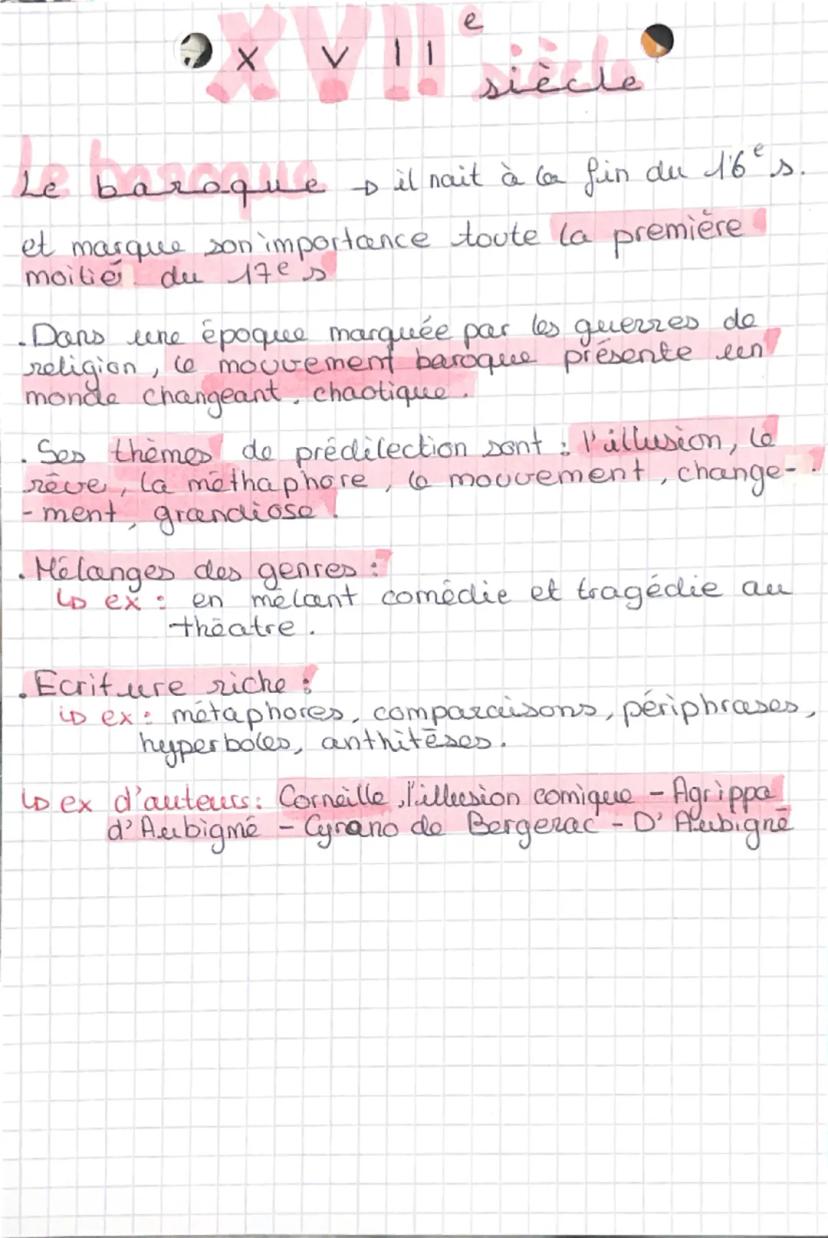 XVIIe
siècle
Le baroque → il nait à la fin du 16e s.
et marque son importance toute la première
moitié du 17e s
. Dans une époque marquée par les guerres de
religion, le mouvement baroque présente un
monde changeant, chaotique.
. Ses thèmes de prédilection sont : l'illusion, le
rêve, la méthaphore, le mouvement, change-
-ment, grandiose.
. Mélanges des genres :
↳ ex : en mêlant comédie et tragédie au
théatre.
. Ecriture riche :
↳ ex : métaphores, comparaisons, périphrases,
hyperboles, anthitèses.
↳ ex d'auteurs : Corneille, l'illusion comique - Agrippa
d'Aubigné - Cyrano de Bergerac - D'Aubigné